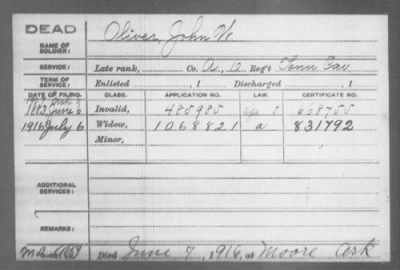 DEAD
NAME OF SOLDIER: Oliver, John W.
SERVICE: Late rank, Co. 12 Reg't Tenn Cav.
TERM OF SERVICE: Enlisted , 1 Discharged , 1
DATE OF FILING. CLASS. APPLICATION NO. LAW. CERTIFICATE NO.
1883 June 6 Invalid, 485985
1916 July 6 Widow, 1068821 a 831792
Minor,
ADDITIONAL SERVICES:
REMARKS:
Died June 7, 1916, at Moore Ark